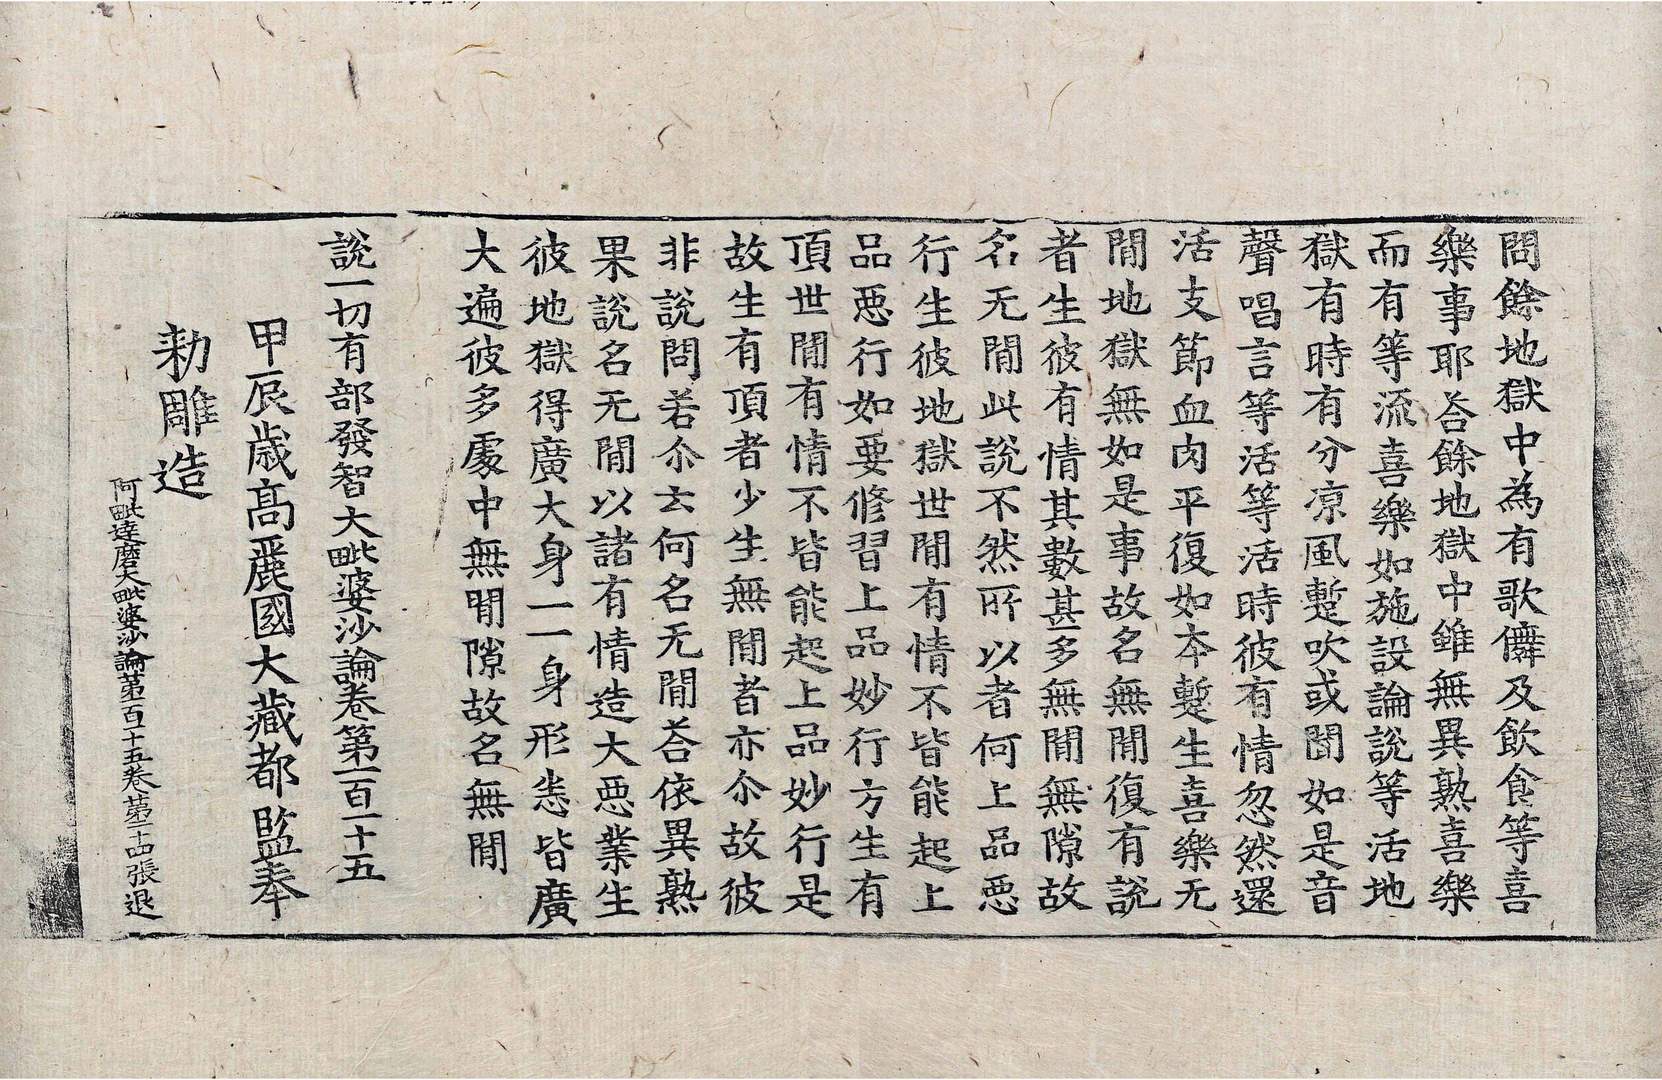 問餘地獄中為有歌儛及飲食等喜
樂事耶荅餘地獄中雖無異熟喜樂
而有等流喜樂如施設論說等活地
獄有時有分凉風蹔吹或聞如是音
聲唱言等活等活時彼有情忽然還
活支節血肉平復如夲蹔生喜樂无
閒地獄無如是事故名無閒復有說
者生彼有情其數甚多無閒無隙故
名无閒此說不然所以者何上品惡
行生彼地獄世閒有情不皆能起上
品惡行如要修習上品妙行方生有
頂世閒有情不皆能起上品妙行是
故生有頂者少生無閒者亦尒故彼
非說問若尒云何名无閒荅依異熟
果說名无閒以諸有情造大惡業生
彼地獄得廣大身一一身形恙皆廣
大遍彼多處中無閒隙故名無閒
說一切有部發智大毗婆沙論卷第一百一十五
甲辰歲高麗國大藏都監奉
勑雕造
阿毗達磨大毗婆沙論第一百十五卷 第二十四張 退